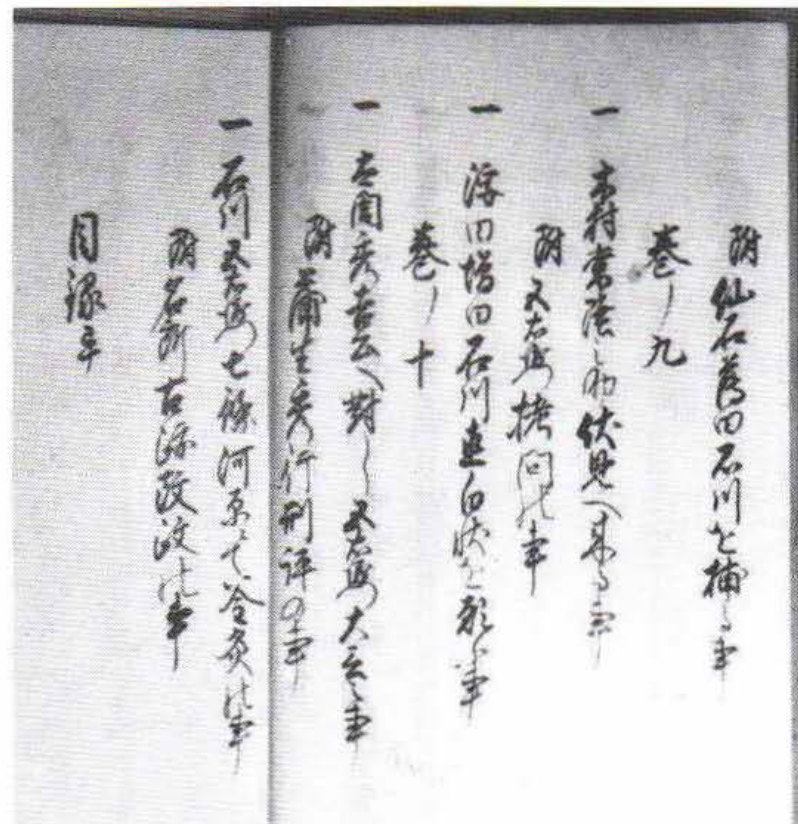 附 仙石落田石川を捕る事
巻ノ九
一 木村常陸之助伏見へ来る事
附 五右衛門拷問の事
一 浮田増田石川直白状を願ふ事
巻ノ十
一 太閤秀吉公へ対し五右衛門大言之事
附 蒲生秀行刑評の事
一 石川五右衛門七條河原にて釜煎の事
附 名所古跡改の事
目録畢